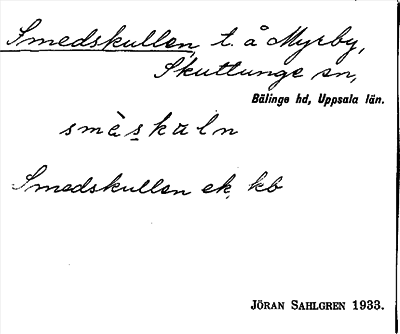 Smedskullen, t. å Myrby,
Skuttunge sn,
Bälinge hd, Uppsala län.
smèskuln
Smedskullen ek. kb
JÖRAN SAHLGREN 1933.